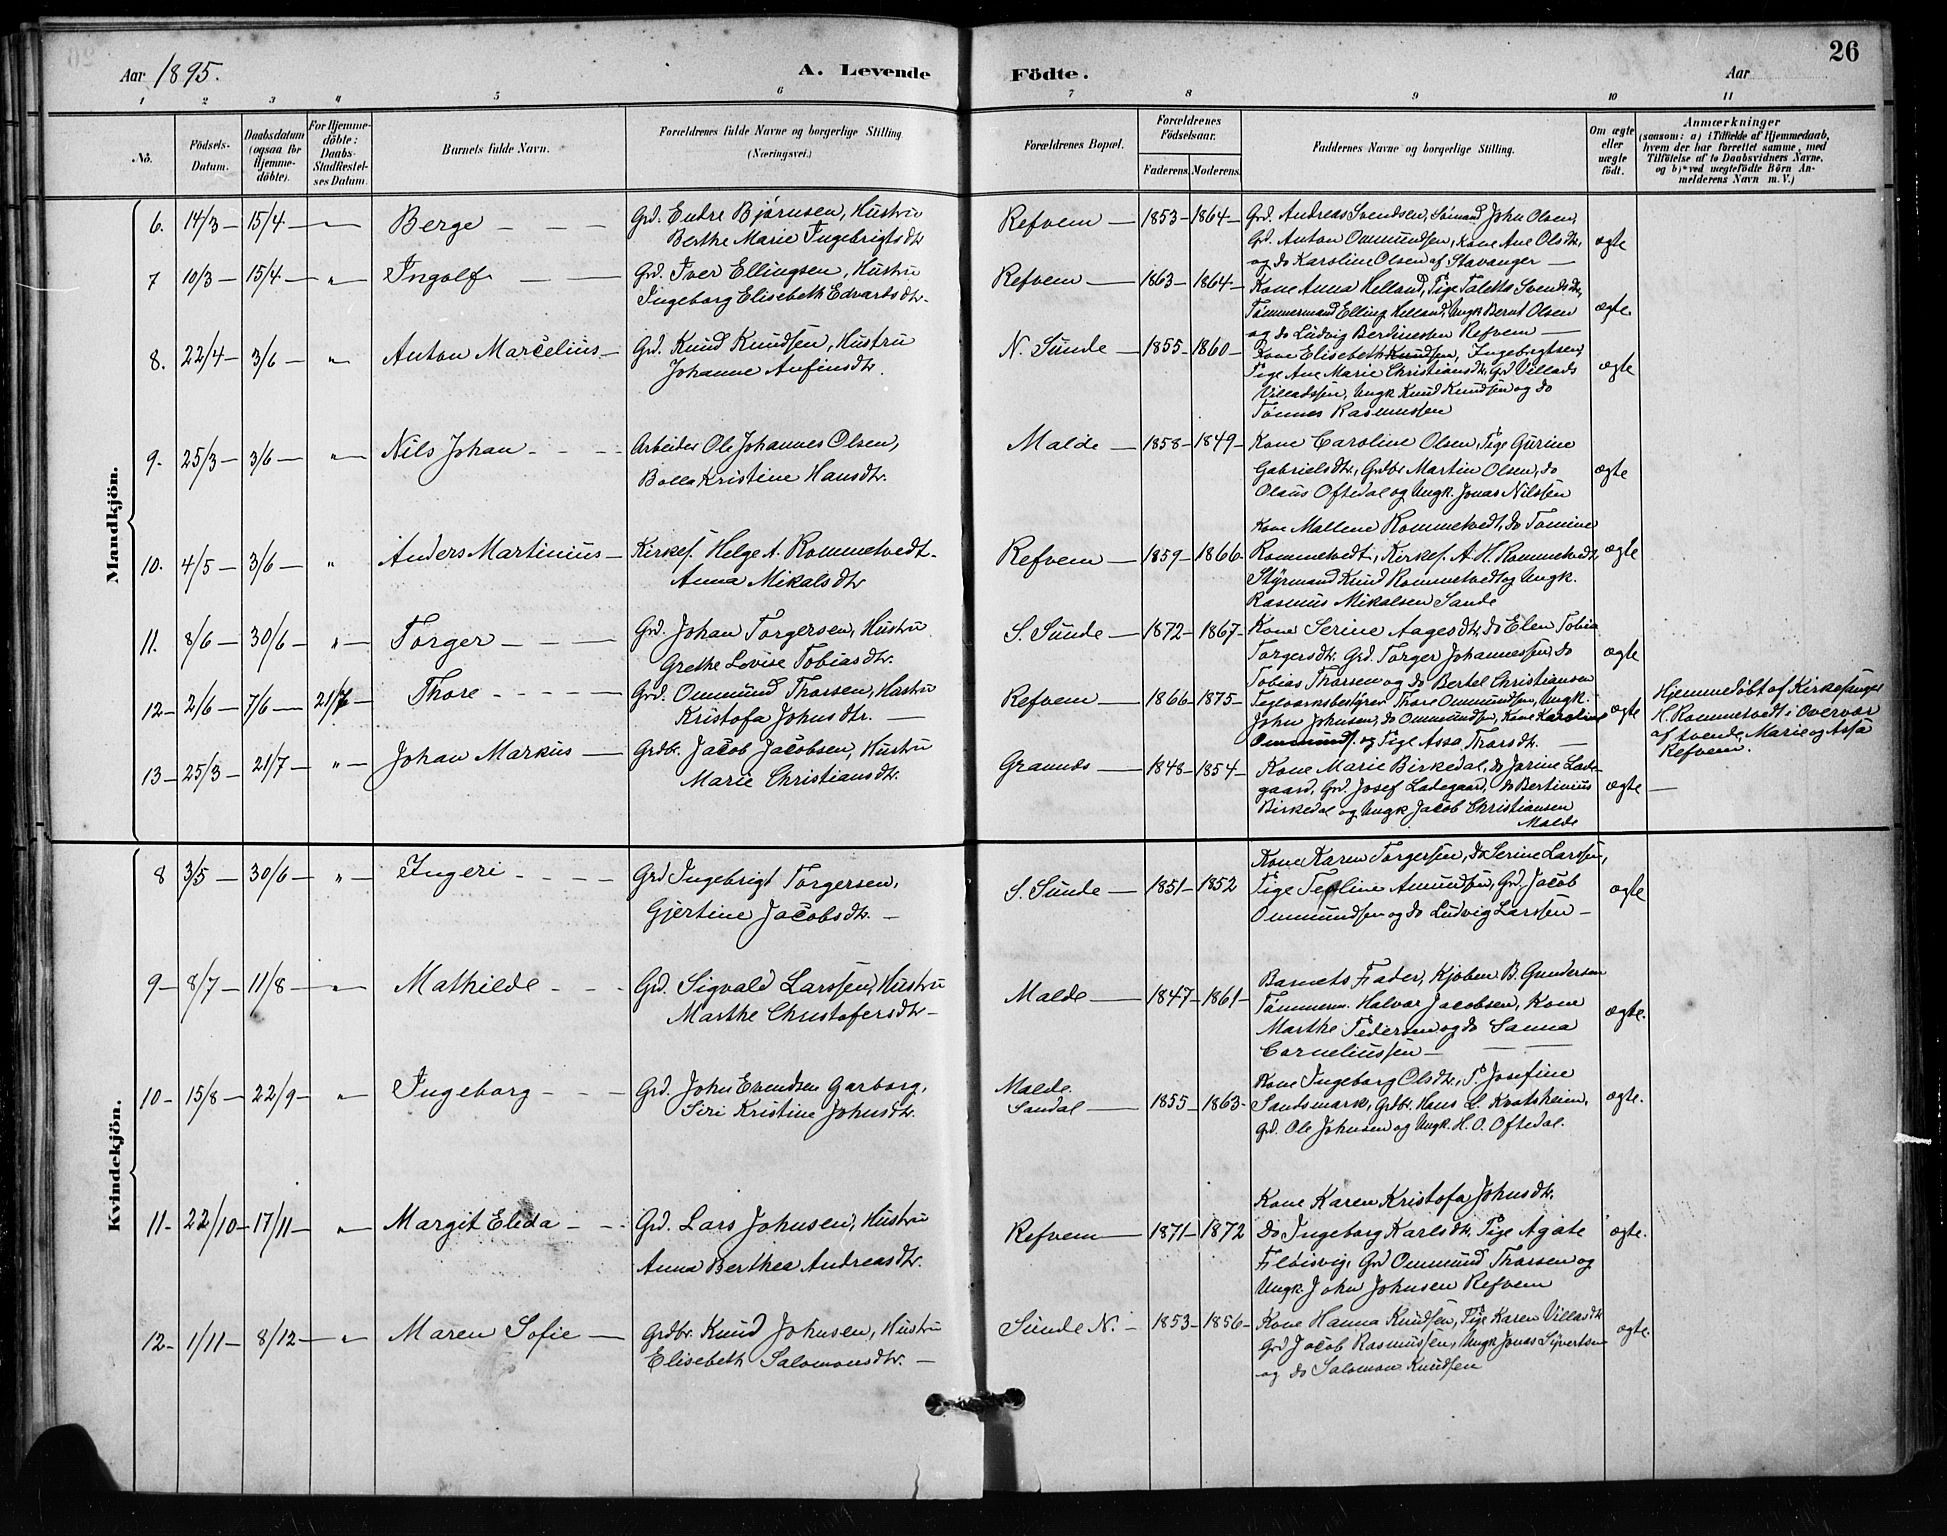 26
Aar 1895.
A. Levende
Födte.
Aar
1 2 3 4 5 6 7 8 9 10 11
No.
Födsels-
Datum.
Daabsdatum
(ogsaa for
Hjemme-
döbte).
For Hjemme-
döbte:
Daabs-
Stadfæstel-
ses Datum.
Barnets fulde Navn.
Forældrenes fulde Navne og borgerlige Stilling.
(Næringsvei.)
Forældrenes Bopæl.
Forældrenes
Födselsaar.
Faderens.
Moderens.
Faddernes Navne og borgerlige Stilling.
Om ægte
eller
uægte
födt.
Anmærkninger
(saasom: a) i Tilfælde af Hjemmedaab,
hvem der har forrettet samme, med
Tilföielse af to Daabsvidners Navne,
og b) ved uægtefödte Börn An-
melderens Navn m. V.)
Mandkjön.
6. 14/3 — 15/4 — " — Berge
Grd. Endre Bjørnsen, Hustru
Berthe Marie Ingebrigtsdtr
Refvem — 1853 — 1864 —
Grd. Andreas Svendsen, Sømand John Olsen,
Grd. Anton Ommundsen, Kone Ane Olsdtr,
og do Karoline Olsen af Stavanger —
ægte
7 10/3 — 15/4 — " — Ingolf
Grd. Iver Ellingsen, Hustru
Ingeborg Elisebeth Edvartsdtr.
Refvem — 1863 — 1864 —
Kone Anna Helland, Pige Taletta Svendsdtr,
Tømmermand Elling Helland, Ungk Bernt Olsen
og do Ludvig Berdinessen Refvem —
ægte.
8. 22/4 — 3/6 — " Anton Marcelius —
Grd. Knud Knudsen, Hustru
Johanne Anfinsdtr.
N. Sunde — 1855 — 1860 —
Kone Elisebeth Knudsen, Ingebrigtsen,
Pige Ane Marie Christiansdtr, Grd Villads
Villadssen, Ungk Knud Knudsen og do
Tønnes Rasmussen
ægte
9. 25/3 — 3/6 — " Nils Johan
Arbeider Ole Johannes Olsen,
Bolla Kristine Hansdtr.
Malde — 1858 — 1849 —
Kone Caroline Olsen, Pige Gurine
Gabrielsdtr., Grdbr Martin Olsen, do
Olaus Oftedal og Ungk. Jonas Nilssen
ægte
10. 4/5 — 3/6 — " Anders Martinius —
Kirkes. Helge A. Rommetvedt.
Anna Mikalsdtr
Refvem — 1859 — 1866 —
Kone Mallene Rommetvedt, do Tomine
Rommetvedt, Kirkes. A. H. Rommetvedt,
Styrmand Knud Rommetvedt og Ungk.
Rasmus Mikalsen Sande
ægte
11. 8/6 — 30/6 — " — Torger
Grd. Johan Torgersen, Hustru
Grethe Lovise Tobiasdtr.
S. Sunde — 1872 — 1867 —
Kone Serine Aagesdtr, do Elen Tobia
Torgersdtr. Grd. Torger Johannessen, do
Tobias Thorsen og do Bertel Christiansen
ægte
12 — 2/6 — 7/6 — 21/7 — Thore
Grd. Ommund Thorsen, Hustru
Kristofa Johnsdtr. —
Refvem — 1866 — 1875 —
Teglværksbestyrer Thore Ommundsen, Ungk.
John Johnsen, do Ommundsen, Kone Karoline
Ommunds. og Pige Assa Thorsdtr. —
ægte
Hjemmedøbt af Kirkesanger
H. Rommetvedt i Overvær
af tvende, Marie og Assa
Refvem.
13 — 25/3 — 21/7 " — Johan Markus —
Grdbr. Jacob Jacobsen, Hustru
Marie Christiansdtr.
Grannds — 1848 — 1854 —
Kone Marie Birkedal, do Jorine Lade-
gaard, Grd. Josef Ladegaard, do Bertinius
Birkedal og Ungk Jacob Christiansen
Malde
ægte —
Kvindekjön.
8 3/5 — 30/6 — " — Ingeri
Grd Ingebrigt Torgersen,
Gjertine Jacobsdtr. —
S. Sunde — 1851 — 1852
Kone Karen Torgersen, do Serine Larssen,
Pige Amundsen, Grd. Jacob
Ommundsen og do Ludvig Larssen —
ægte
9 — 8/7 — 11/8 — " — Mathilde
Grd. Sigvald Larssen, Hustru
Marthe Christofersdtr —
Malde — 1847 — 1861 —
Barnets Fader, Kjøbm B. Gundersen
Tømmerm. Halvor Jacobsen, Kone
Marthe Pedersen og do Sanna
Corneliussen —
ægte.
10 — 15/8 — 22/9 — " Ingeborg
Grd. John Evendsen Garborg,
Siri Kristine Johnsdtr.
Malde
Sandal — 1855 — 1863 —
Kone Ingeborg Olsdtr., P. Josefine
Sandsmark, Grdbr. Hans L. Kvalsheim,
Grd. Ole Johnsen og Ungk. H. O. Oftedal.
ægte.
11 — 22/10 — 17/11 — " Margit Elida
Grd. Lars Johnsen, Hustru
Anna Berthea Andreasdtr.
Refvem — 1871 — 1872
Kone Karen Kristofa Johnsdtr.
do Ingeborg Karlsdtr. Pige Agate
Fløisvig, Grd Ommund Thorsen og
Ungk. John Johnsen Refvem
ægte.
12 — 1/11 — 8/12 — " Maren Sofie —
Grdbr. Knud Johnsen, Hustru
Elisebeth Salomonsdtr. —
Sunde N. — 1853 — 1856 —
Kone Hanna Knudsen, Pige Karen Villasdtr
Grd Jacob Rasmussen, Ungk Jonas Sivertsen
og do Salomon Knudsen
ægte.